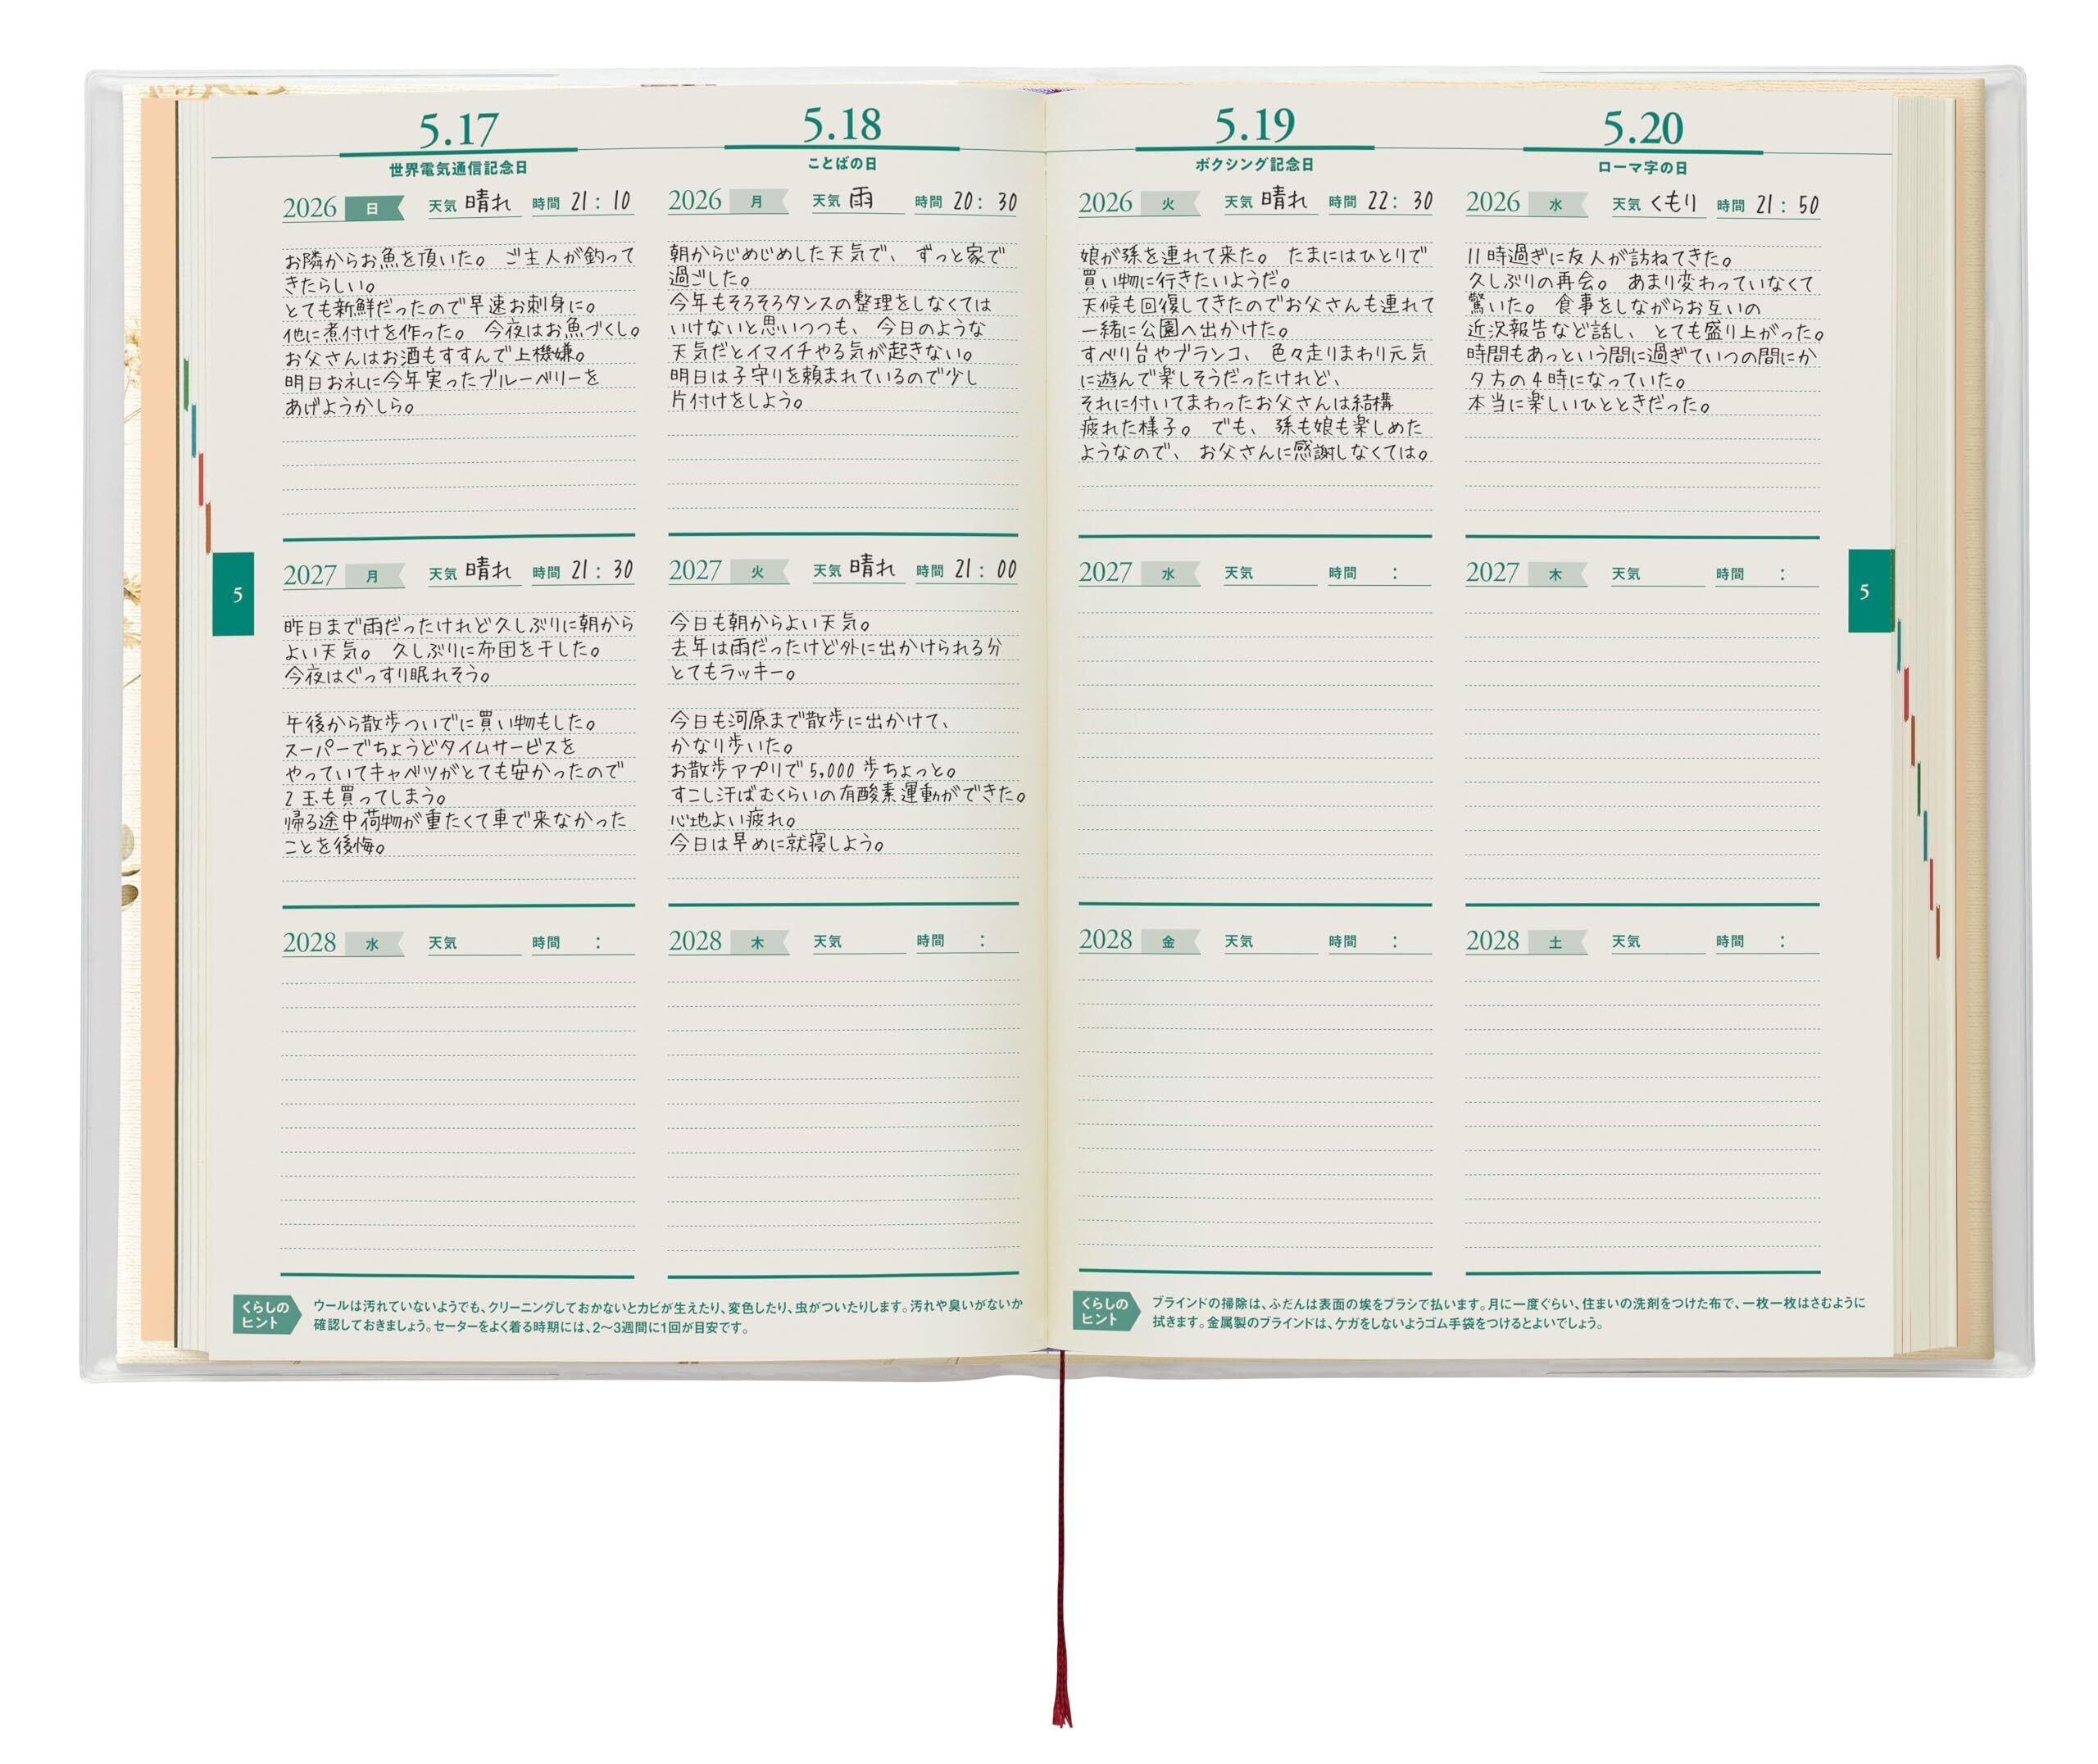 5.17
世界電気通信記念日
2026 日 天気 晴れ 時間 21:10
お隣からお魚を頂いた。 ご主人が釣って
きたらしい。
とても新鮮だったので早速お刺身に。
他に煮付けを作った。 今夜はお魚づくし。
お父さんはお酒もすすんで上機嫌。
明日お礼に今年実ったブルーベリーを
あげようかしら。
2027 月 天気 晴れ 時間 21:30
昨日まで雨だったけれど久しぶりに朝から
よい天気。 久しぶりに布団を干した。
今夜はぐっすり眠れそう。
午後から散歩ついでに買い物もした。
スーパーでちょうどタイムサービスを
やっていてキャベツがとても安かったので
2玉も買ってしまう。
帰る途中荷物が重たくて車で来なかった
ことを後悔。
2028 水 天気 時間 :
5.18
ことばの日
2026 月 天気 雨 時間 20:30
朝からじめじめした天気で、 ずっと家で
過ごした。
今年もそろそろタンスの整理をしなくては
いけないと思いつつも、 今日のような
天気だとイマイチやる気が起きない。
明日は子守りを頼まれているので少し
片付けをしよう。
2027 火 天気 晴れ 時間 21:00
今日も朝からよい天気。
去年は雨だったけど外に出かけられる分
とてもラッキー。
今日も河原まで散歩に出かけて、
かなり歩いた。
お散歩アプリで5,000歩ちょっと。
すこし汗ばむくらいの有酸素運動ができた。
心地よい疲れ。
今日は早めに就寝しよう。
2028 木 天気 時間 :
5
くらしの
ヒント
ウールは汚れていないようでも、クリーニングしておかないとカビが生えたり、変色したり、虫がついたりします。汚れや臭いがないか
確認しておきましょう。セーターをよく着る時期には、2～3週間に1回が目安です。
5.19
ボクシング記念日
2026 火 天気 晴れ 時間 22:30
娘が孫を連れて来た。 たまにはひとりで
買い物に行きたいようだ。
天候も回復してきたのでお父さんも連れて
一緒に公園へ出かけた。
すべり台やブランコ、 色々走りまわり元気
に遊んで楽しそうだったけれど、
それに付いてまわったお父さんは結構
疲れた様子。 でも、 孫も娘も楽しめた
ようなので、 お父さんに感謝しなくては。
2027 水 天気 時間 :
2028 金 天気 時間 :
5.20
ローマ字の日
2026 水 天気 くもり 時間 21:50
11時過ぎに友人が訪ねてきた。
久しぶりの再会。 あまり変わっていなくて
驚いた。 食事をしながらお互いの
近況報告など話し、 とても盛り上がった。
時間もあっという間に過ぎていつの間にか
夕方の4時になっていた。
本当に楽しいひとときだった。
2027 木 天気 時間 :
2028 土 天気 時間 :
5
くらしの
ヒント
ブラインドの掃除は、ふだんは表面の埃をブラシで払います。月に一度ぐらい、住まいの洗剤をつけた布で、一枚一枚はさむように
拭きます。金属製のブラインドは、ケガをしないようゴム手袋をつけるとよいでしょう。